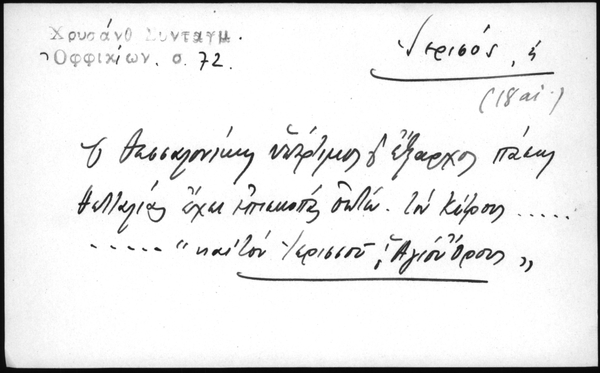 Χρυσάνθ Συνταγμ.
Ὀφφικίων. σ. 72.
Ἱερισός, ἡ
(18 αἰ.)
Ὁ Θεσσαλονίκης ὑπέρτιμος καὶ ἔξαρχος πάσης
Θετταλίας ἔχει ἐπισκοπὰς ὀκτώ. τὸν Κίτρους .....
..... "καὶ τὸν Ἱερισσοῦ καὶ Ἁγίου Ὄρους"